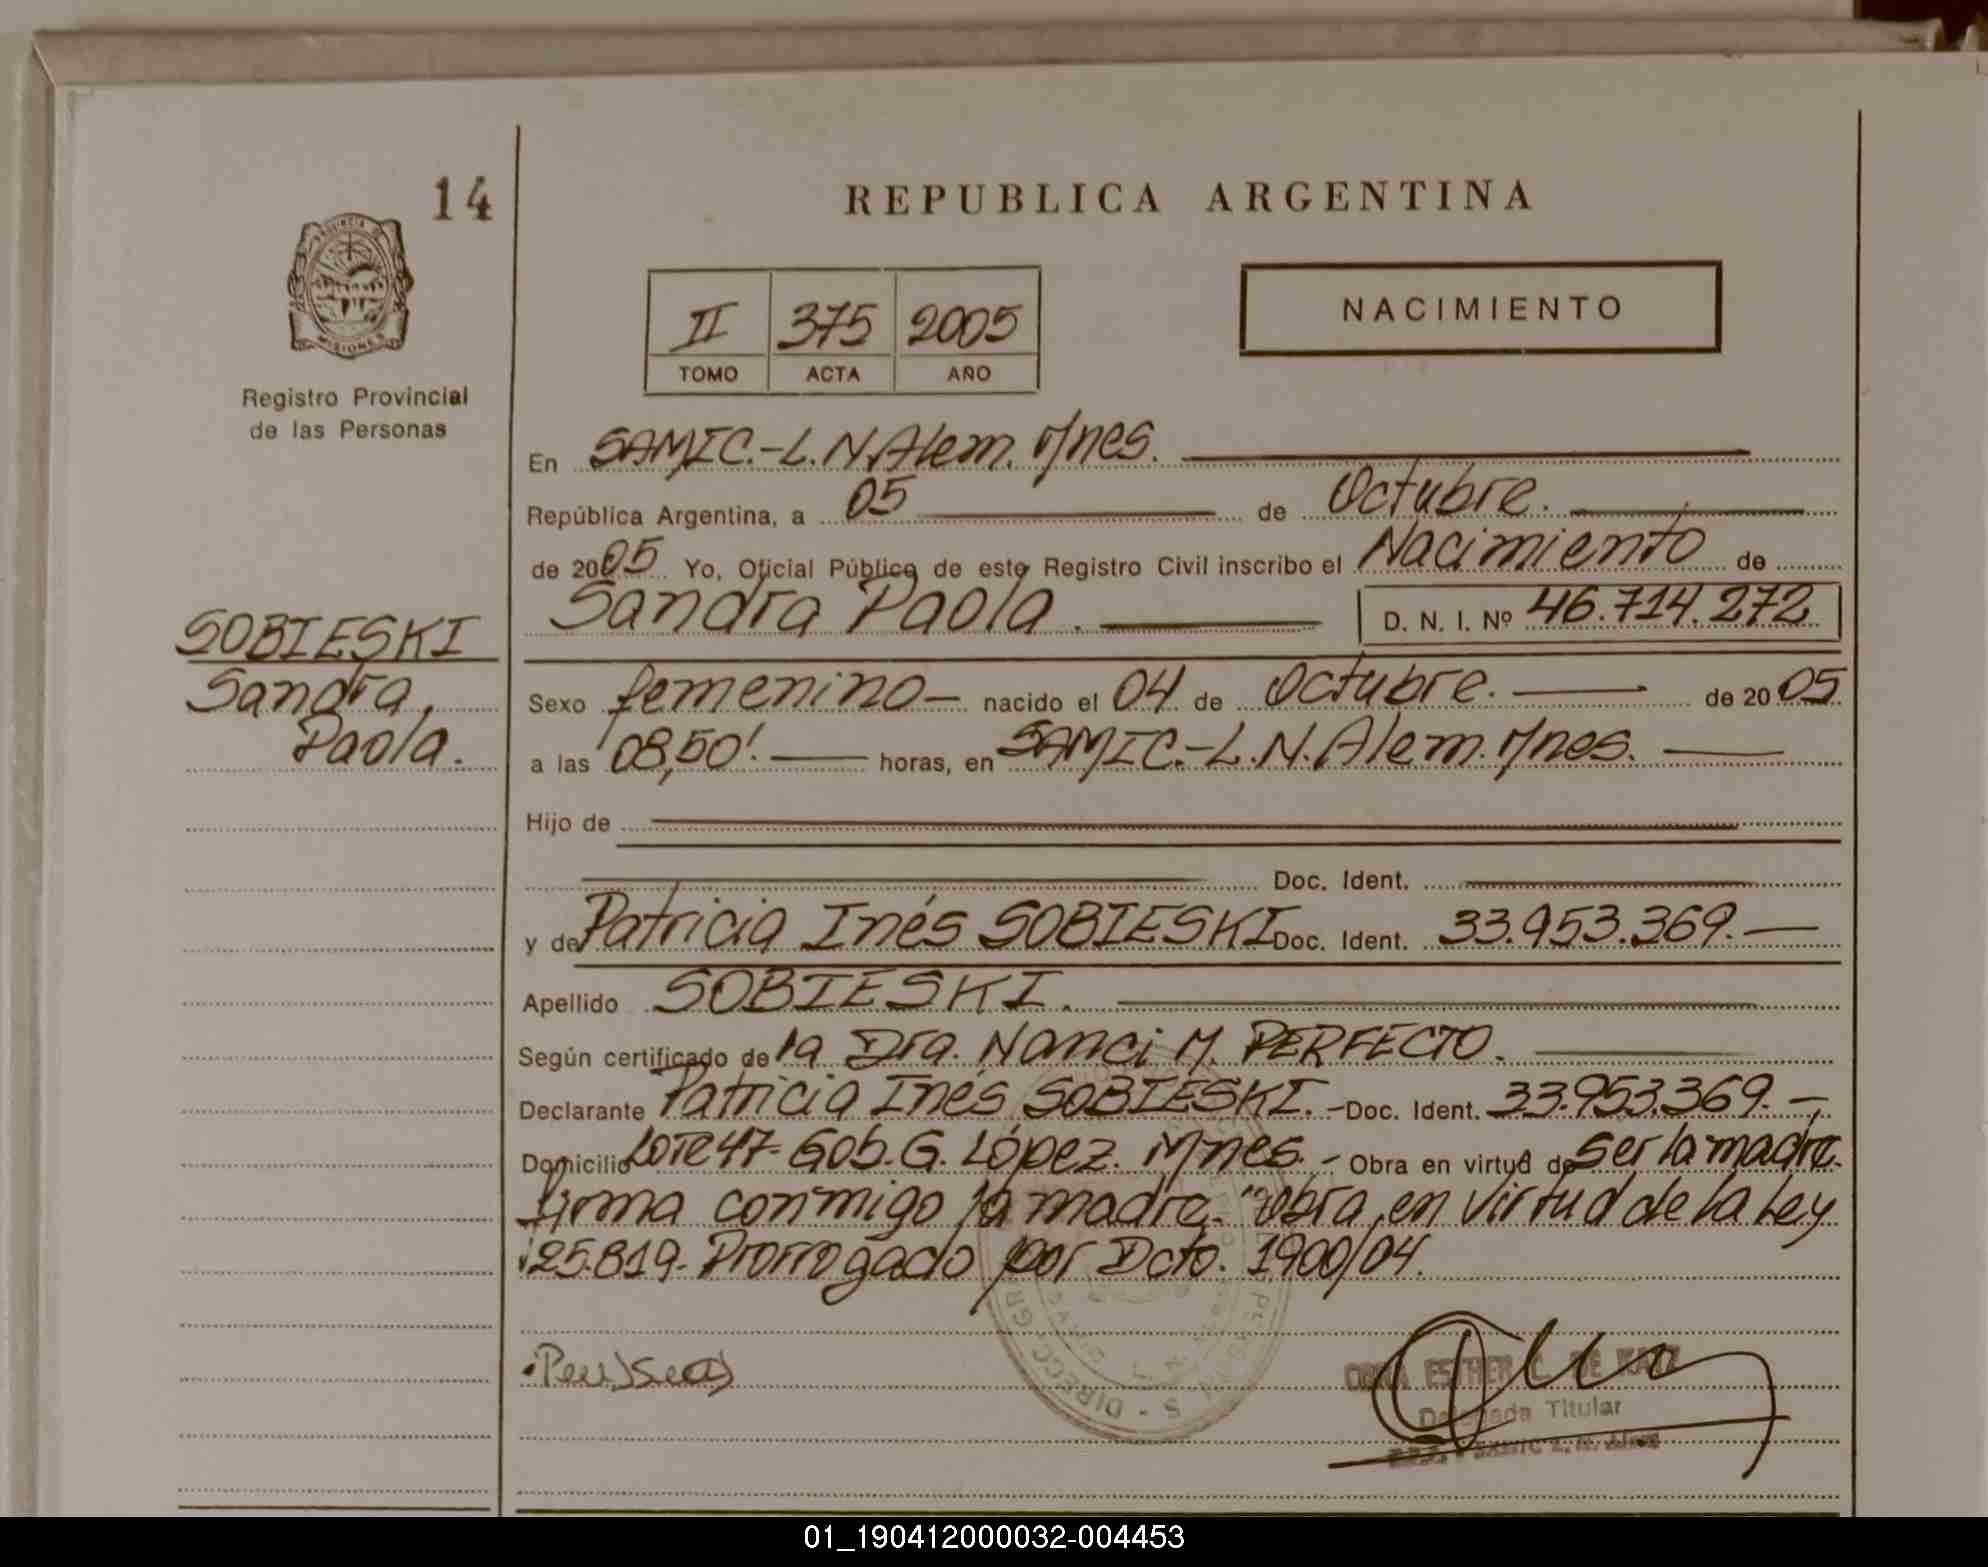 14
REPUBLICA ARGENTINA
PROVINCIA DE
MISIONES
Registro Provincial
de las Personas
II 375 2005
TOMO ACTA AÑO
NACIMIENTO
En SAMIC.-L.N.Alem. M/nes.
República Argentina, a 05 de Octubre.
de 2005 Yo, Oficial Público de este Registro Civil inscribo el Nacimiento de
Sandra Paola. D. N. I. Nº 46.714.272
SOBIESKI
Sandra
Paola.
Sexo femenino- nacido el 04 de Octubre. de 2005
a las 08,50'. horas, en SAMIC.-L.N.Alem. M/nes.
Hijo de
Doc. Ident.
y de Patricia Inés SOBIESKI Doc. Ident. 33.953.369.-
Apellido SOBIESKI.
Según certificado de la Dra. Nanci M. PERFECTO.
Declarante Patricia Inés SOBIESKI.- Doc. Ident. 33.953.369.-
Domicilio Lote 47- Gob. G. López. Mnes.- Obra en virtud de ser la madre.
firma conmigo la madre. "Obra en virtud de la Ley
25.819- Prorrogado por Dcto. 1900/04.
ESTHER C. DE
Delegada Titular
SAMIC L. N. Alem
01_190412000032-004453